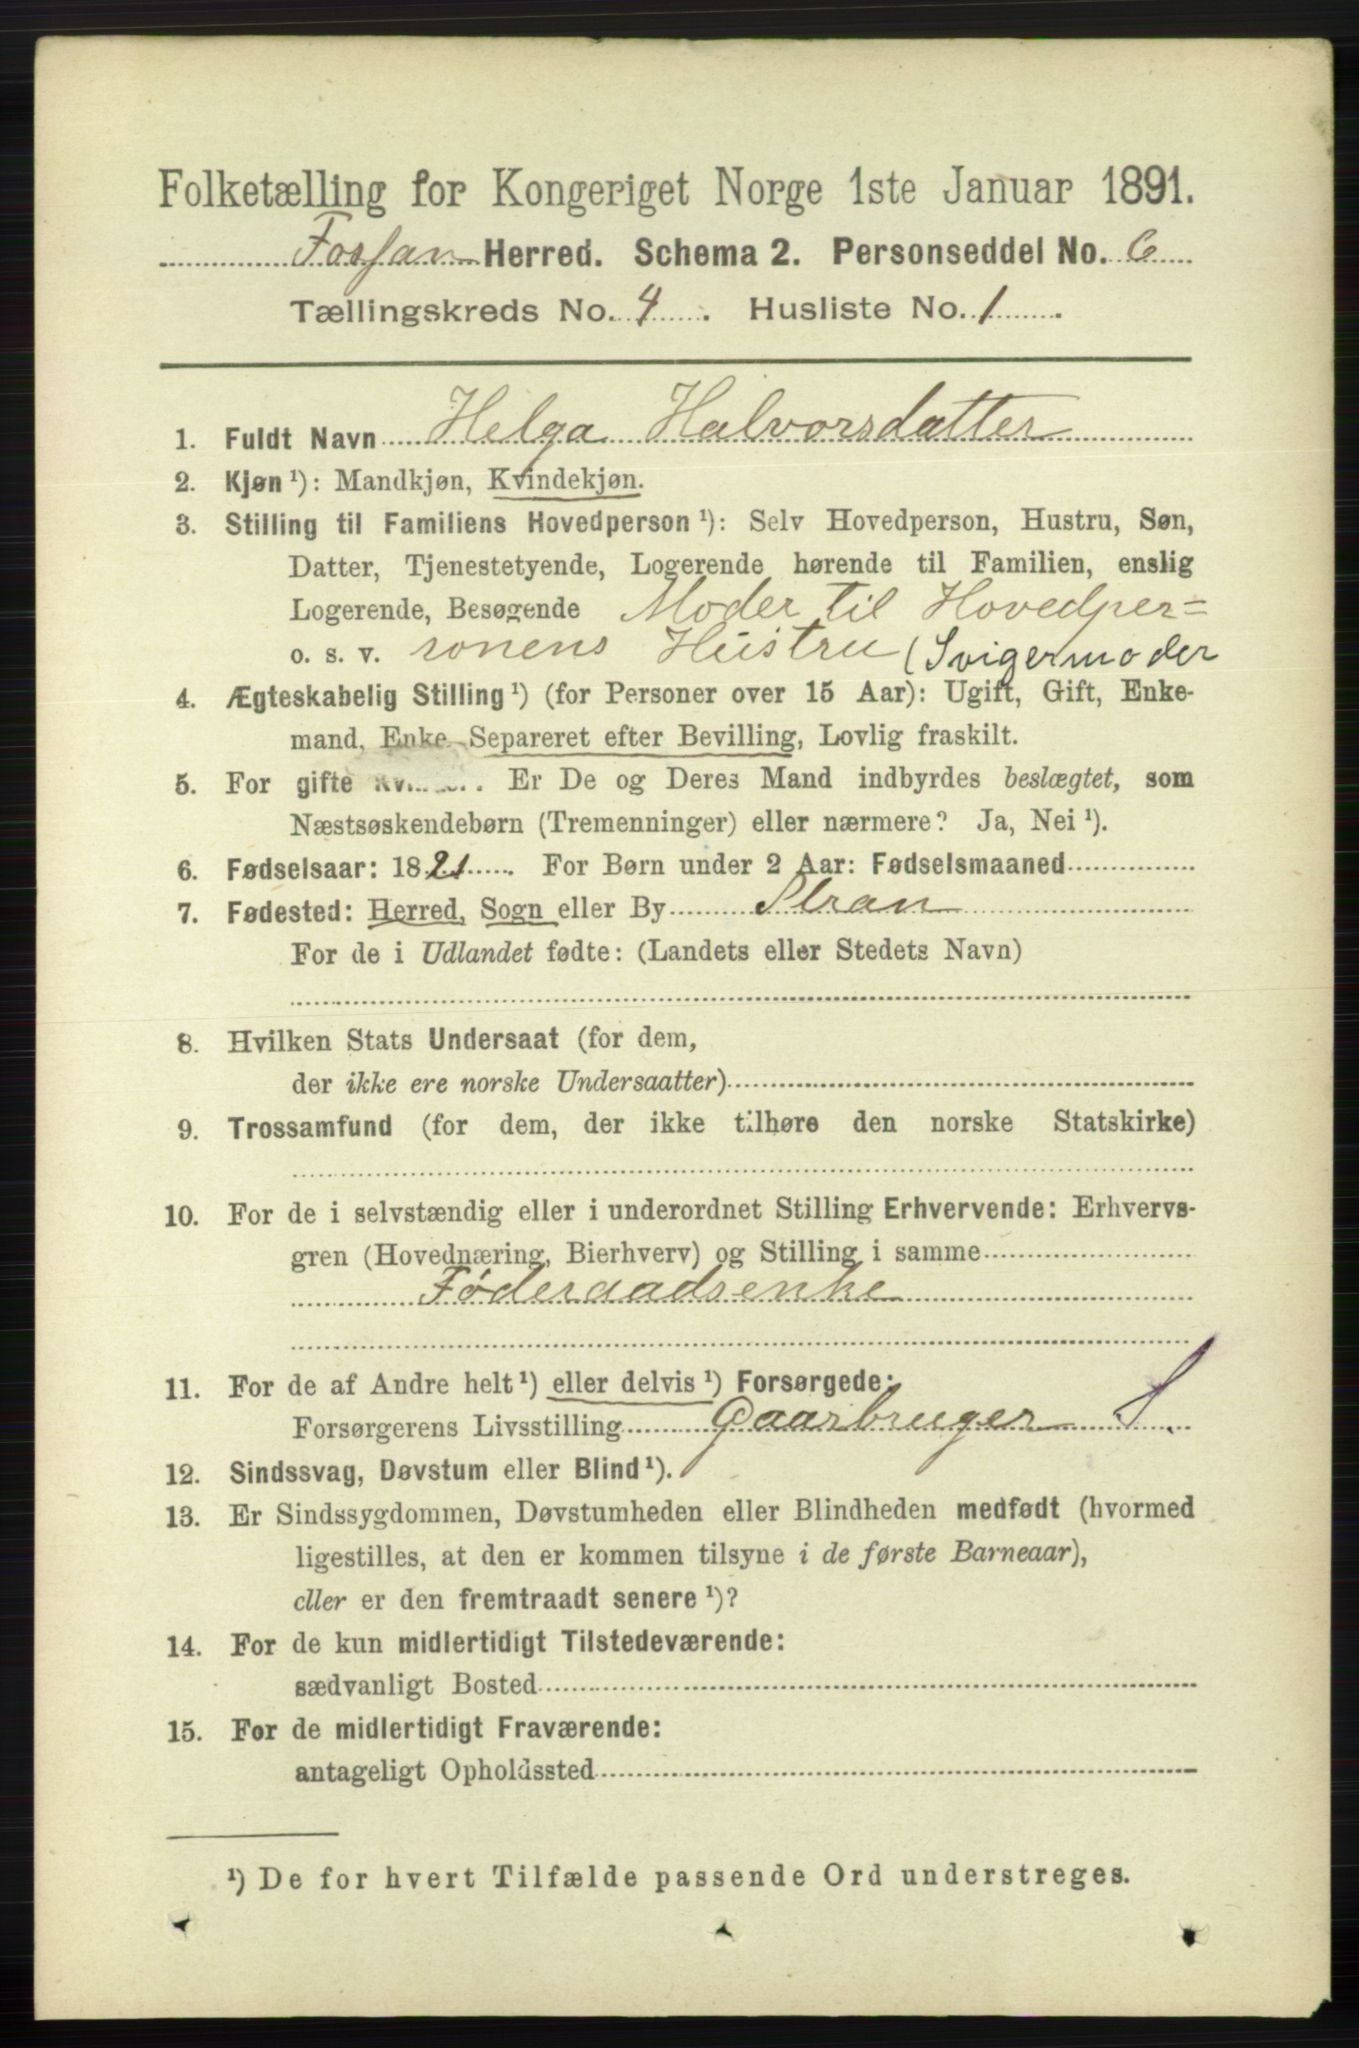 Folketælling for Kongeriget Norge 1ste Januar 1891.
Forsan Herred. Schema 2. Personseddel No. 6
Tællingskreds No. 4. Husliste No. 1.
1. Fuldt Navn Helga Halvorsdatter
2. Kjøn ¹): Mandkjøn, Kvindekjøn.
3. Stilling til Familiens Hovedperson ¹): Selv Hovedperson, Hustru, Søn,
Datter, Tjenestetyende, Logerende hørende til Familien, enslig
Logerende, Besøgende Moder til Hovedper=
o. s. v. sonens Hustru (Svigermoder
4. Ægteskabelig Stilling ¹) (for Personer over 15 Aar): Ugift, Gift, Enke-
mand, Enke, Separeret efter Bevilling, Lovlig fraskilt.
5. For gifte Er De og Deres Mand indbyrdes beslægtet, som
Næstsøskendebørn (Tremenninger) eller nærmere? Ja, Nei ¹).
6. Fødselsaar: 1821. For Børn under 2 Aar: Fødselsmaaned
7. Fødested: Herred, Sogn eller By Stran
For de i Udlandet fødte: (Landets eller Stedets Navn)
8. Hvilken Stats Undersaat (for dem,
der ikke ere norske Undersaatter)
9. Trossamfund (for dem, der ikke tilhøre den norske Statskirke)
10. For de i selvstændig eller i underordnet Stilling Erhvervende: Erhvervs-
gren (Hovednæring, Bierhverv) og Stilling i samme
Føderaadsenke
11. For de af Andre helt ¹) eller delvis ¹) Forsørgede:
Forsørgerens Livsstilling Gaarbruger S.
12. Sindssvag, Døvstum eller Blind ¹).
13. Er Sindssygdommen, Døvstumheden eller Blindheden medfødt (hvormed
ligestilles, at den er kommen tilsyne i de første Barneaar),
eller er den fremtraadt senere ¹)?
14. For de kun midlertidigt Tilstedeværende:
sædvanligt Bosted
15. For de midlertidigt Fraværende:
antageligt Opholdssted
¹) De for hvert Tilfælde passende Ord understreges.